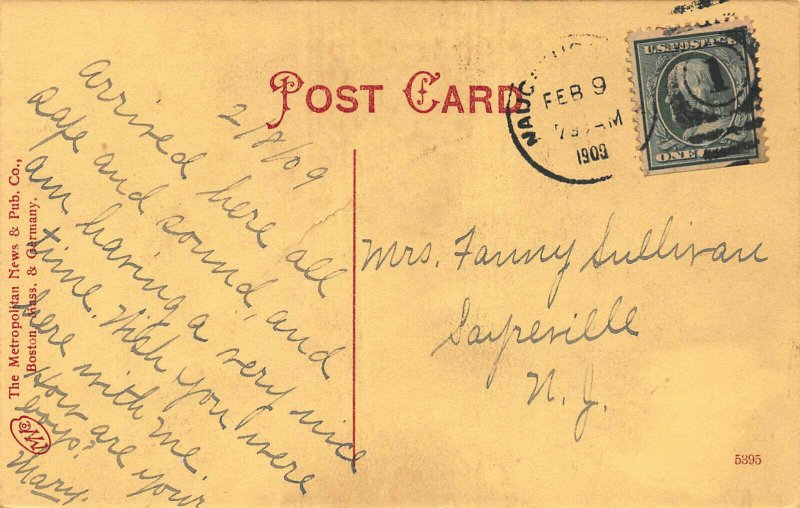 POST CARD
2/8/09
arrived here all
safe and sound, and
am having a very nice
time. Wish you were
here with me.
How are your
boys?
Mary.
Mrs. Fanny Sullivan
Sayreville
N. J.
FEB 9
AM
1909
U.S. POSTAGE
ONE
1
The Metropolitan News & Pub. Co.,
Boston, Mass. & Germany.
5395